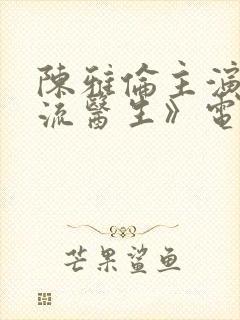 陳雅倫主演
流醫生》電
芒果鲨鱼